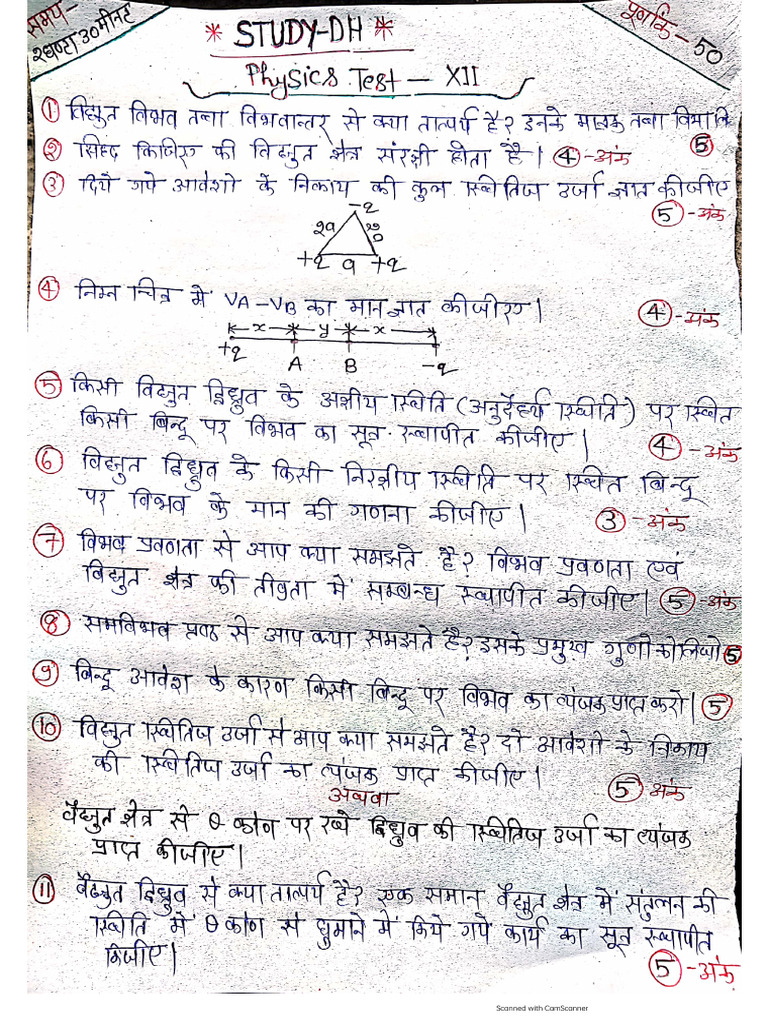 समय-
2घण्टा 30 मीनट
* STUDY-DH *
पूर्णांक - 50
Physics Test - XII
① विद्युत विभव तथा विभवान्तर से क्या तात्पर्य है? इनके मात्रक तथा विमा लि
② सिद्ध किजिए की विद्युत क्षेत्र संरक्षी होता है। ④-अंक ⑤
③ दिये गये आवेशो के निकाय की कुल स्थितिज उर्जा ज्ञात कीजीए
⑤-अंक
-q
2a 2a
+q a +q
④ निम्न चित्र में VA-VB का मान ज्ञात कीजीए। ④-अंक
x y x
+q A B -q
⑤ किसी विद्युत द्विध्रुव के अक्षीय स्थिति (अनुदैर्ध्य स्थिति) पर स्थित
किसी बिन्दू पर विभव का सूत्र स्थापीत कीजीए। ④-अंक
⑥ विद्युत द्विध्रुव के किसी निरक्षीय स्थिति पर स्थित बिन्दू
पर विभव के मान की गणना कीजीए। ③-अंक
⑦ विभव प्रवणता से आप क्या समझते है? विभव प्रवणता एवं
विद्युत क्षेत्र की तीव्रता में सम्बन्ध स्थापीत कीजीए। ⑤-अंक
⑧ समविभव पृष्ठ से आप क्या समझते है? इसके प्रमुख गुणो को लिखो ⑤
⑨ बिन्दू आवेश के कारण किसी बिन्दू पर विभव का व्यंजक प्राप्त करो। ⑤
⑩ विद्युत स्थितिज उर्जा से आप क्या समझते है? दो आवेशो के निकाय
की स्थितिज उर्जा का व्यंजक प्राप्त कीजीए। ⑤ अंक
अथवा
वैद्युत क्षेत्र से θ कोण पर रखे द्विध्रुव की स्थितिज उर्जा का व्यंजक
प्राप्त कीजीए।
⑪ वैद्युत द्विध्रुव से क्या तात्पर्य है? एक समान वैद्युत क्षेत्र में संतुलन की
स्थिति में θ कोण से घुमाने में किये गये कार्य का सूत्र स्थापीत
किजीए। ⑤-अंक
Scanned with CamScanner